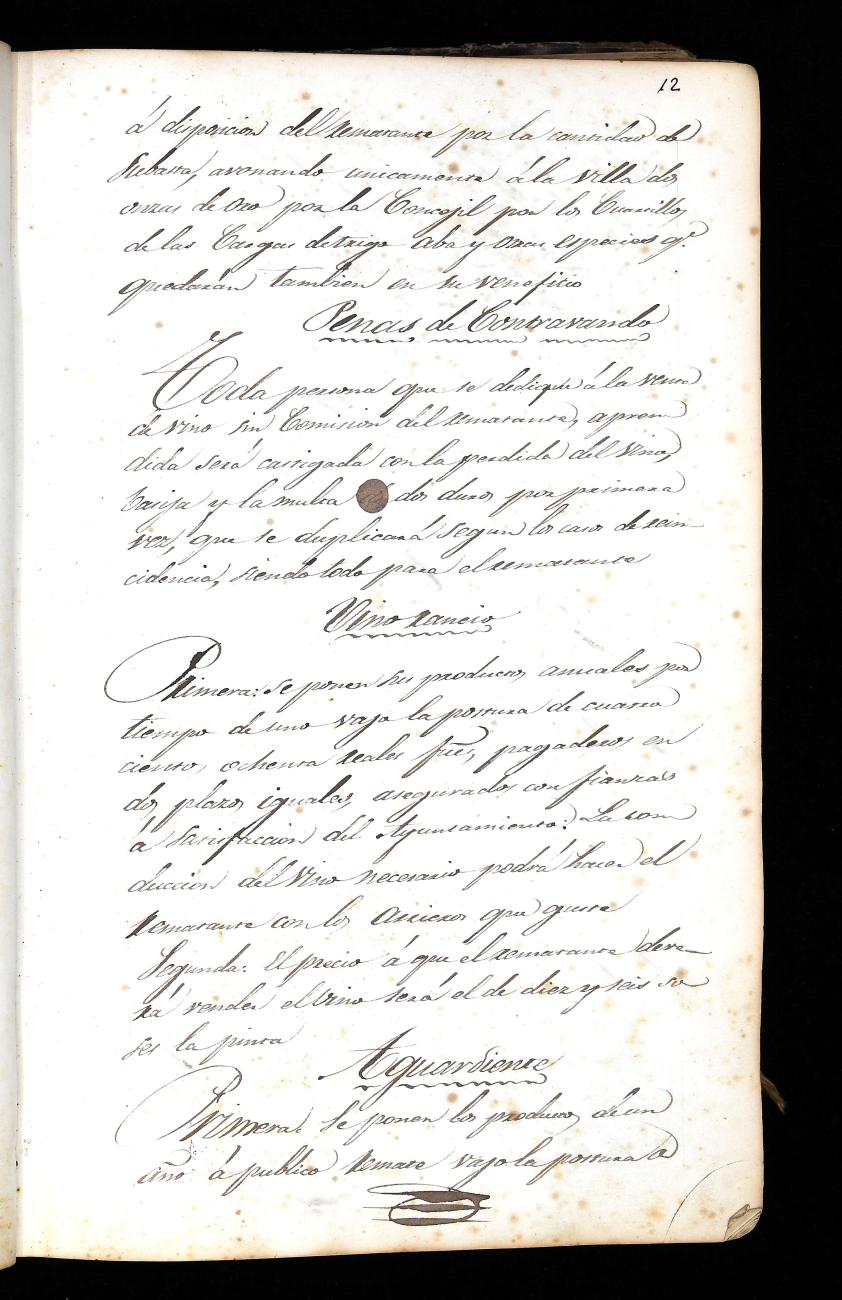 12
á disposicion del Rematante por la cantidad de
Subasta, avonando unicamente á la Villa dos
onzas de Oro por la Concejil por los Cuartillos
de las Cargas de trigo aba y otras especies q.e
quedarán tambien en su venefitio
Penas de Contravando
Toda persona que se dedique á la venta
de vino sin Comision del Rematante, apren
dida será castigada con la perdida del Vino,
basija y la multa de dos duros por primera
vez, que se duplicará segun los casos de rein
cidencia, siendo todo para el rematante
Vino rancio
Primera: se ponen sus productos anuales por
tiempo de uno vajo la postura de cuatro
cientos ochenta reales ftes, pagaderos en
dos plazos iguales, asegurados con fianzas
á satisfaccion del Ayuntamiento: La con
duccion del Vino necesario podrá hacer el
Rematante con los Arrieros que guste
Segunda: El precio á que el rematante deve-
rá vender el Vino será el de diez y seis so
ses la pinta
Aguardiente
Primera: Se ponen los productos de un
año á publico Remate vajo la postura d